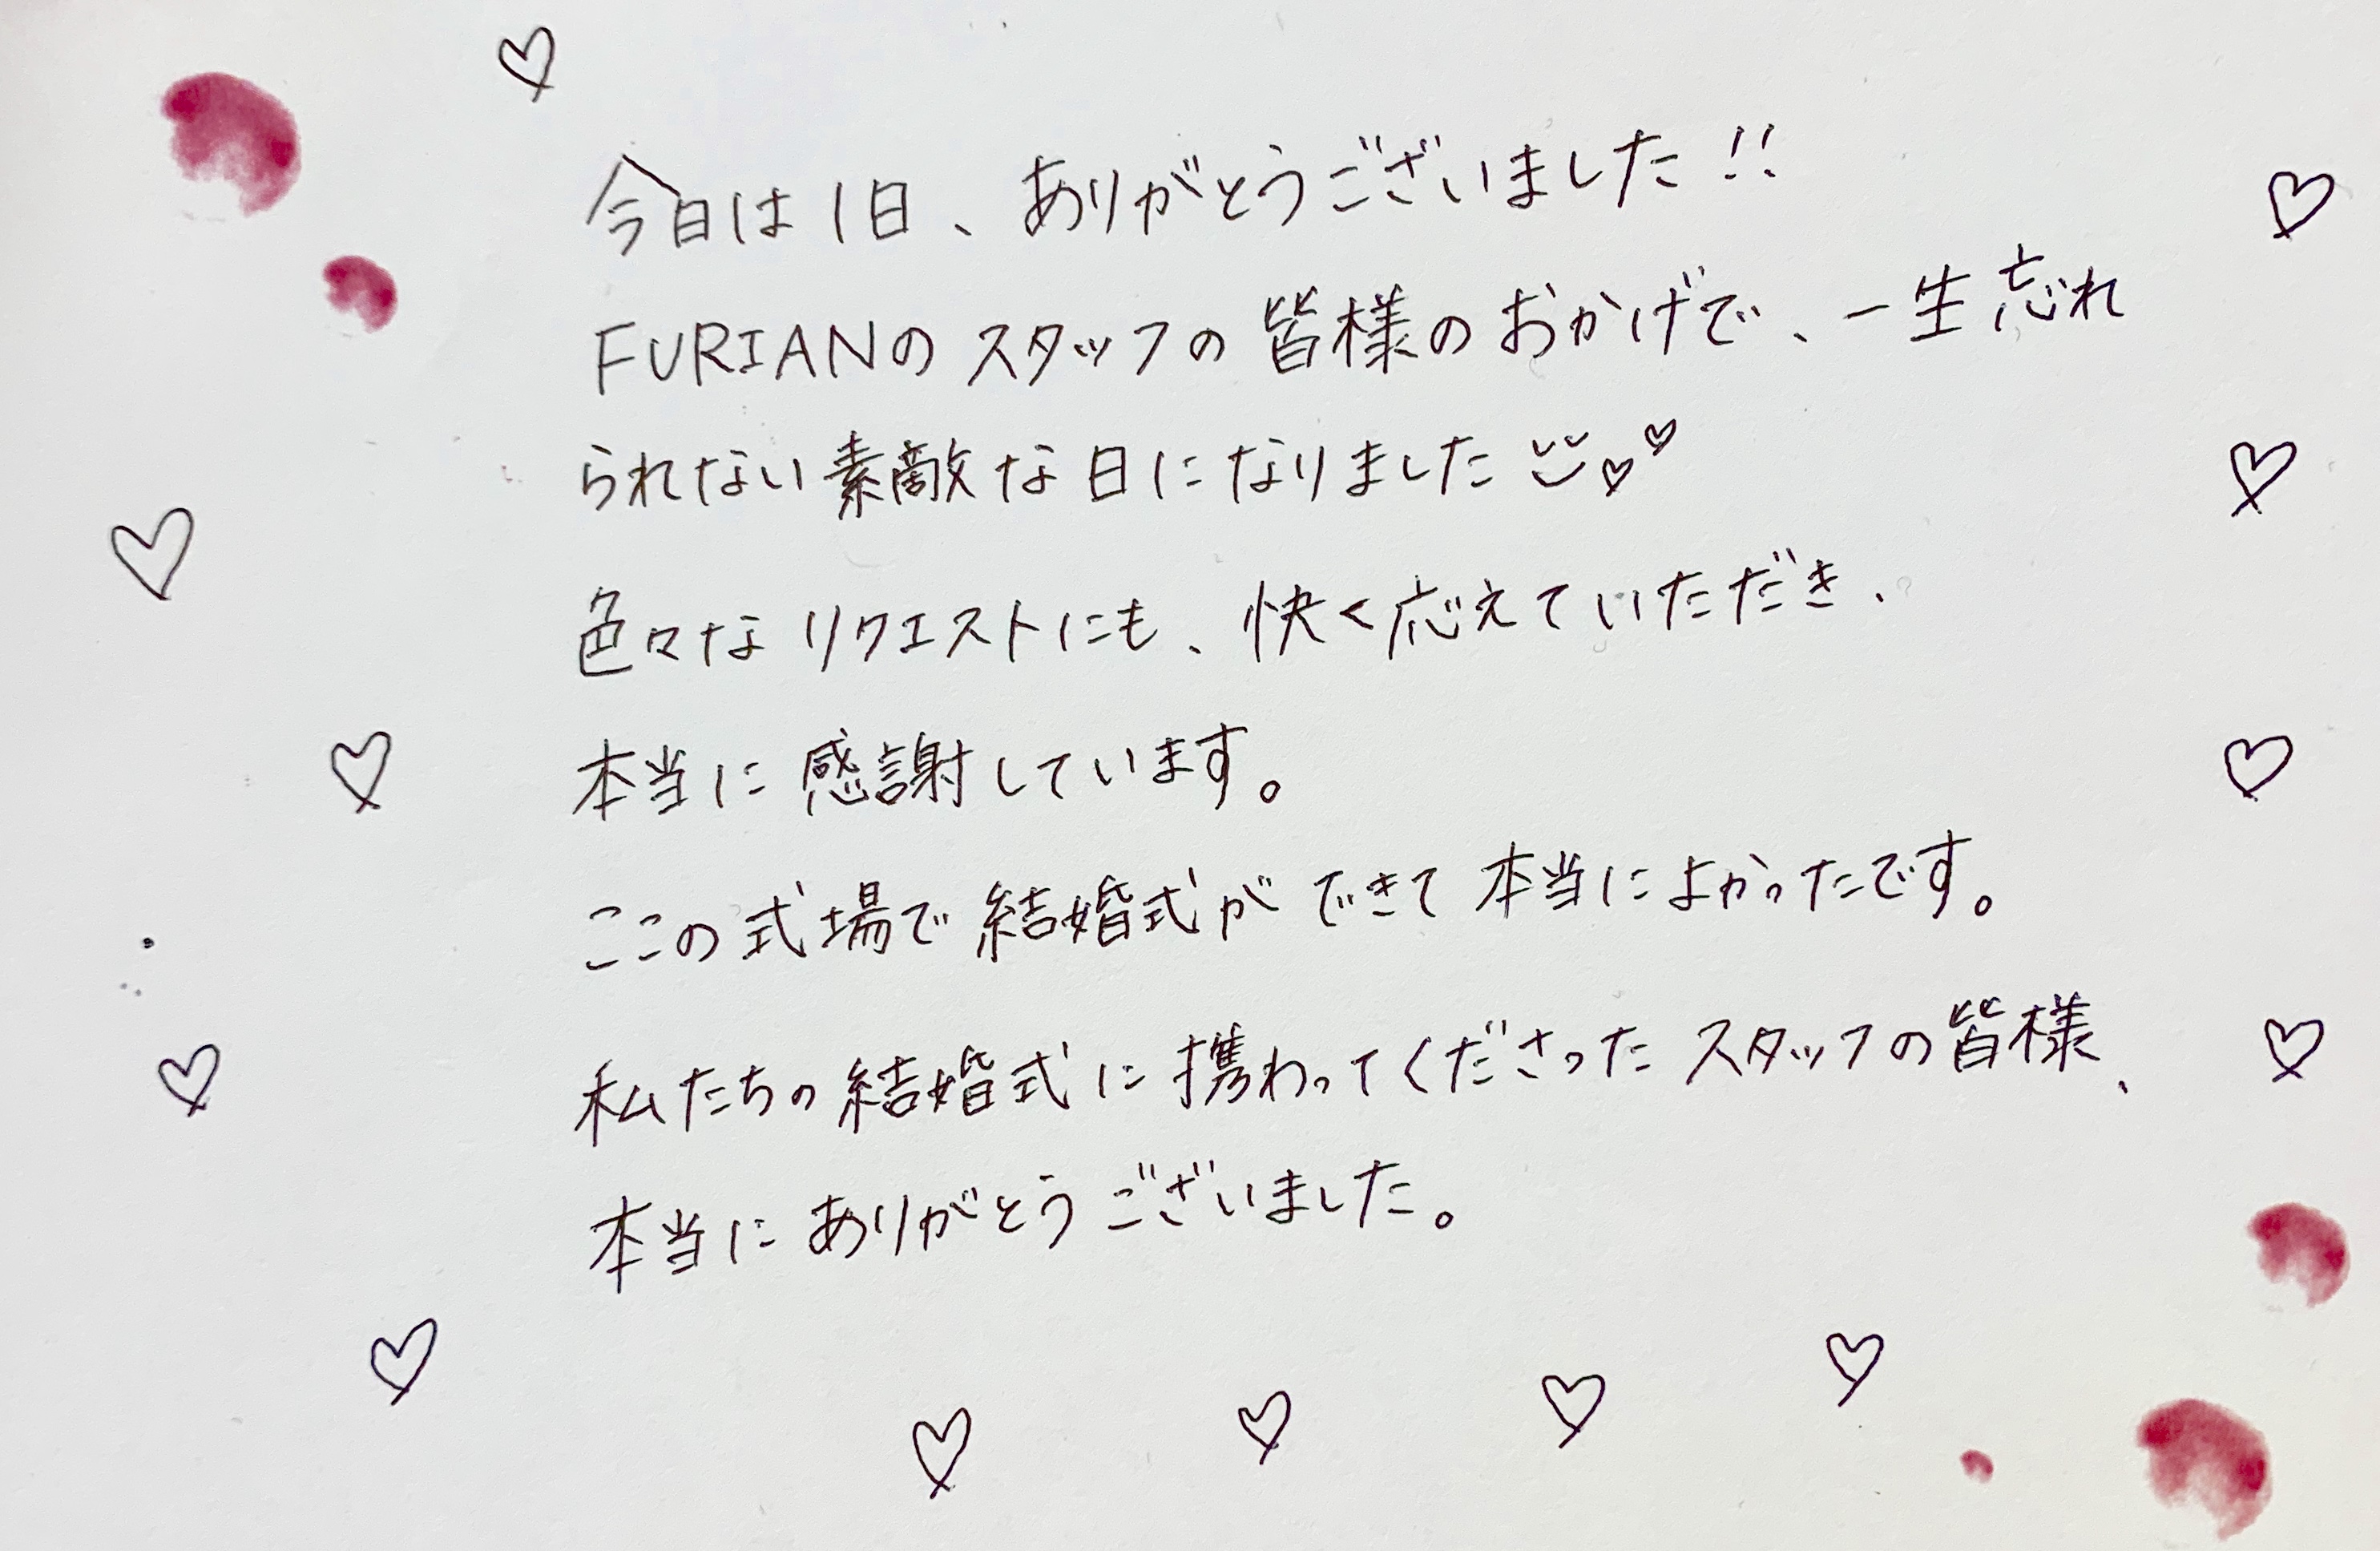 今日は1日、ありがとうございました!!
FURIANのスタッフの皆様のおかげで、一生忘れ
られない素敵な日になりました
色々なリクエストにも、快く応えていただき、
本当に感謝しています。
ここの式場で結婚式ができて本当によかったです。
私たちの結婚式に携わってくださったスタッフの皆様、
本当にありがとうございました。